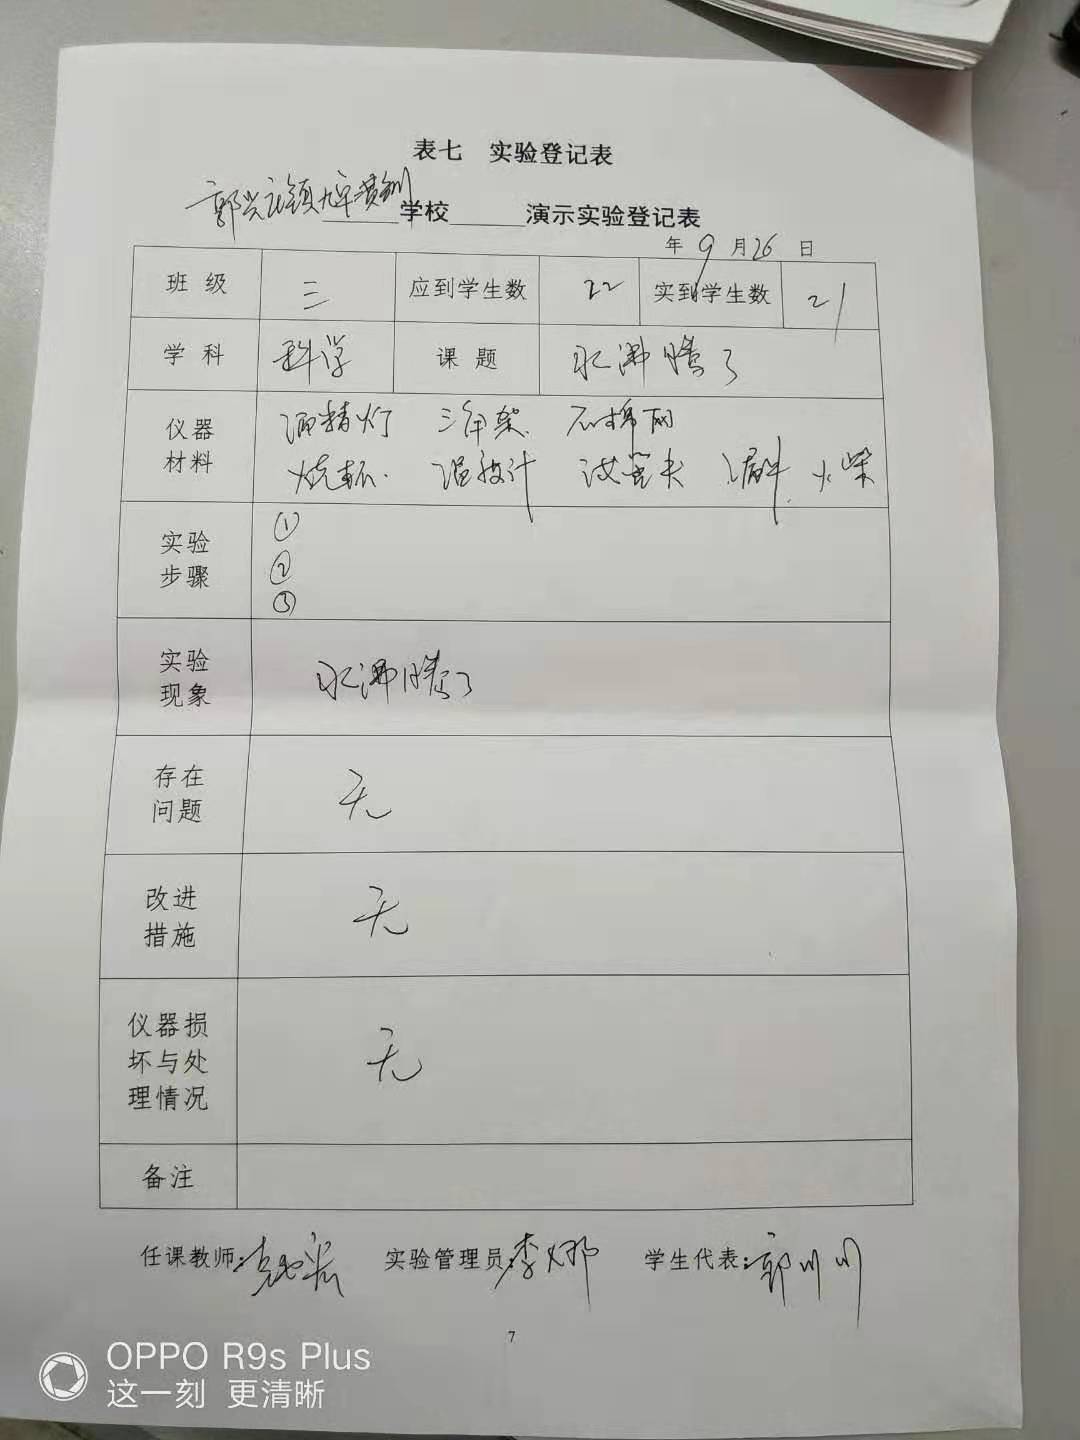 表七 实验登记表
郭兴庄镇 学校 演示实验登记表
年 9 月 26 日
班级 三 应到学生数 22 实到学生数 21
学科 科学 课题 水沸腾了
仪器材料 酒精灯 三角架 石棉网
烧杯 温度计 试管夹 漏斗 火柴
实验步骤 ①
②
③
实验现象 水沸腾了
存在问题 无
改进措施 无
仪器损坏与处理情况 无
备注
任课教师: 实验管理员: 李 学生代表: 郭川川
7
OPPO R9s Plus
这一刻 更清晰